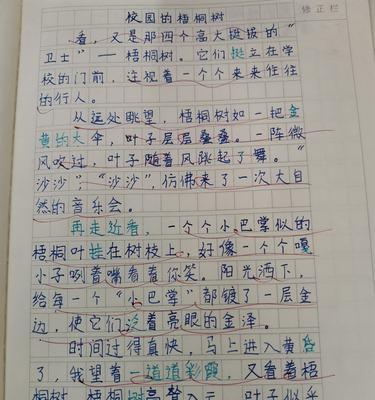 修正栏
校园的梧桐树
看，又是那四个高大挺拔的“
卫士”——梧桐树。它们挺立在学
校的门前，注视着一个个来来往往
的行人。
从远处眺望，梧桐树如一把金
黄的大伞，叶子层层叠叠。一阵微
风吹过，叶子随着风跳起了舞。“
沙沙”，“沙沙”，仿佛来了一次大自
然的音乐会。
再走近看，一个个小巴掌似的
梧桐叶挂在树枝上，好像一个个嘎
小子咧着嘴看着你笑。阳光洒下，
给每一个“小巴掌”都镀了一层金
边，使它们泛着亮眼的金泽。
时间过得真快，马上进入黄昏
了，我望着一道道彩霞，又看着梧
桐树，梧桐树高耸入云，叶子似乎